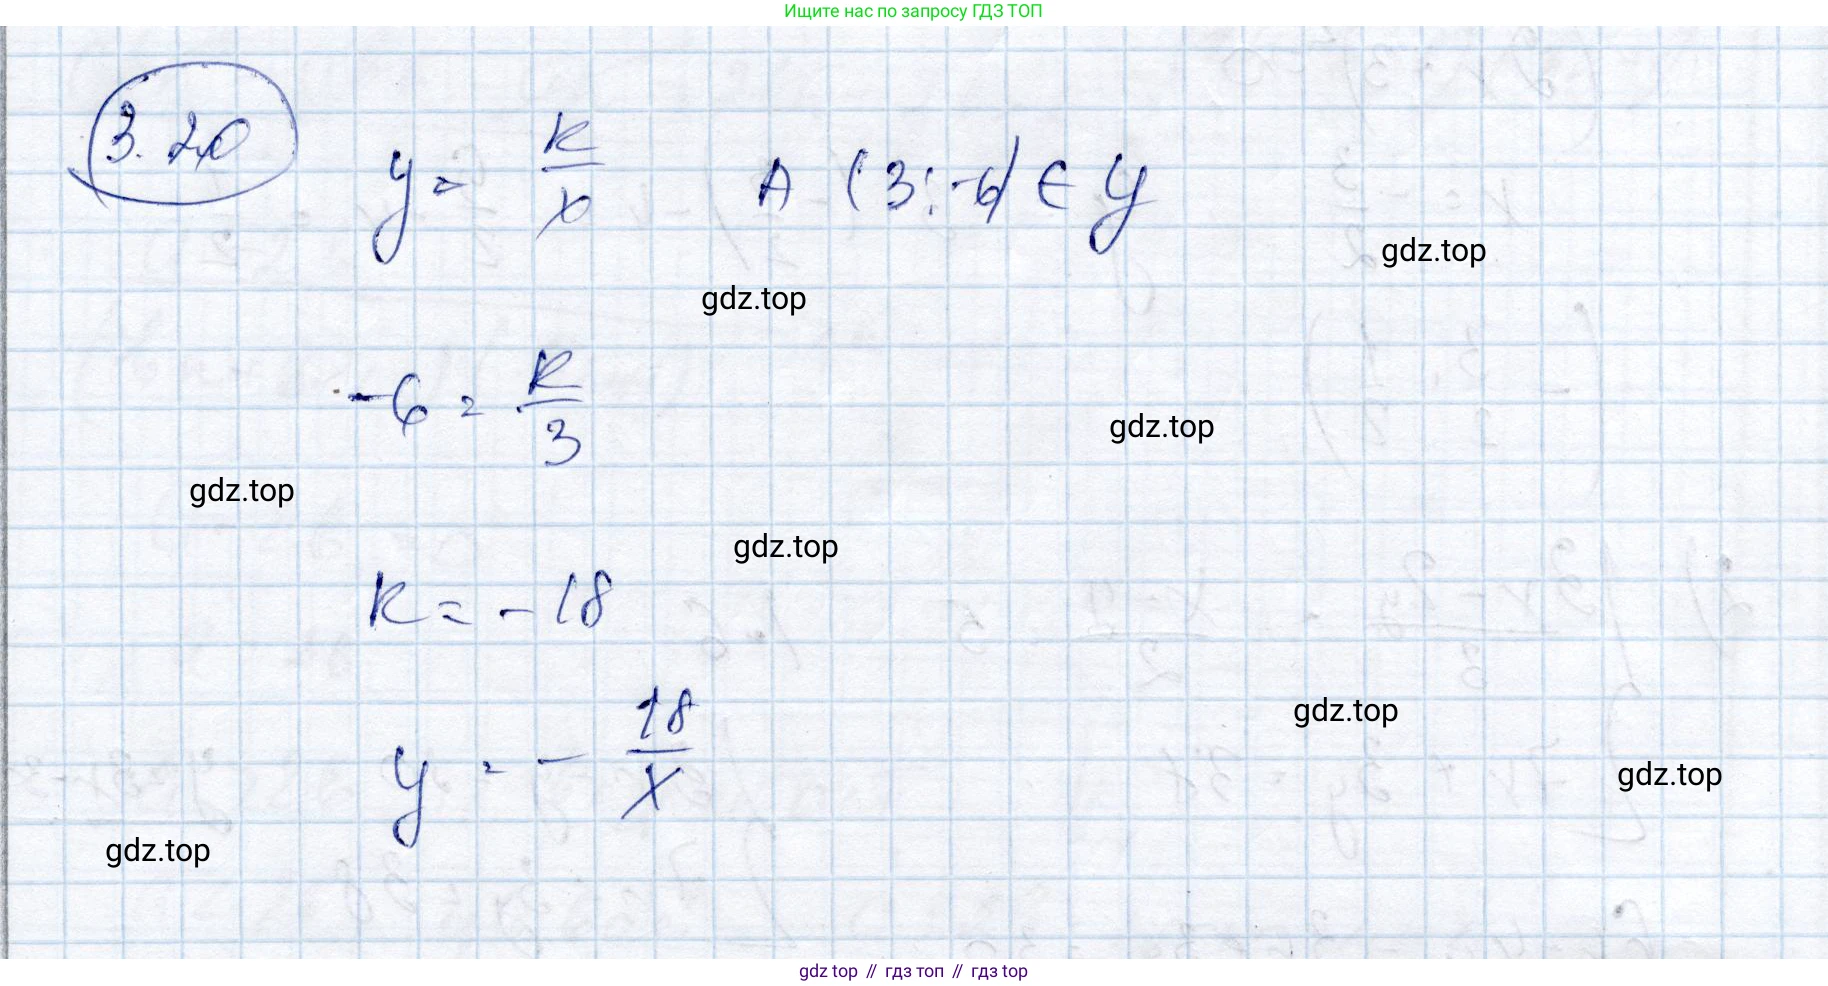 Ищите нас по запросу ГДЗ ТОП
3.20
y = k/x A (3; -6) ∈ y
gdz.top
gdz.top
-6 = k/3
gdz.top
gdz.top
gdz.top
k = -18
y = - 18/x
gdz.top
gdz.top
gdz.top
gdz top // гдз топ // гдз top